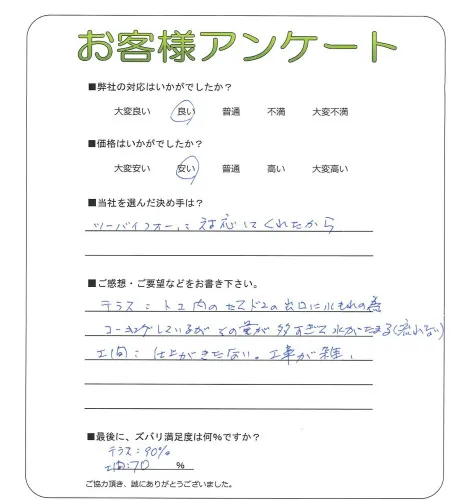 お客様アンケート
■弊社の対応はいかがでしたか？
大変良い 良い 普通 不満 大変不満
■価格はいかがでしたか？
大変安い 安い 普通 高い 大変高い
■当社を選んだ決め手は？
ツーバイフォーに対応してくれたから
■ご感想・ご要望などをお書き下さい。
テラス：トユ内の の出口に水もれの為
コーキングしているが その量が多すぎて水がたまる(流れない)
土間：仕上がきたない。工事が雑、
■最後に、ズバリ満足度は何%ですか？
テラス:90%
土間:70 %
ご協力頂き、誠にありがとうございました。